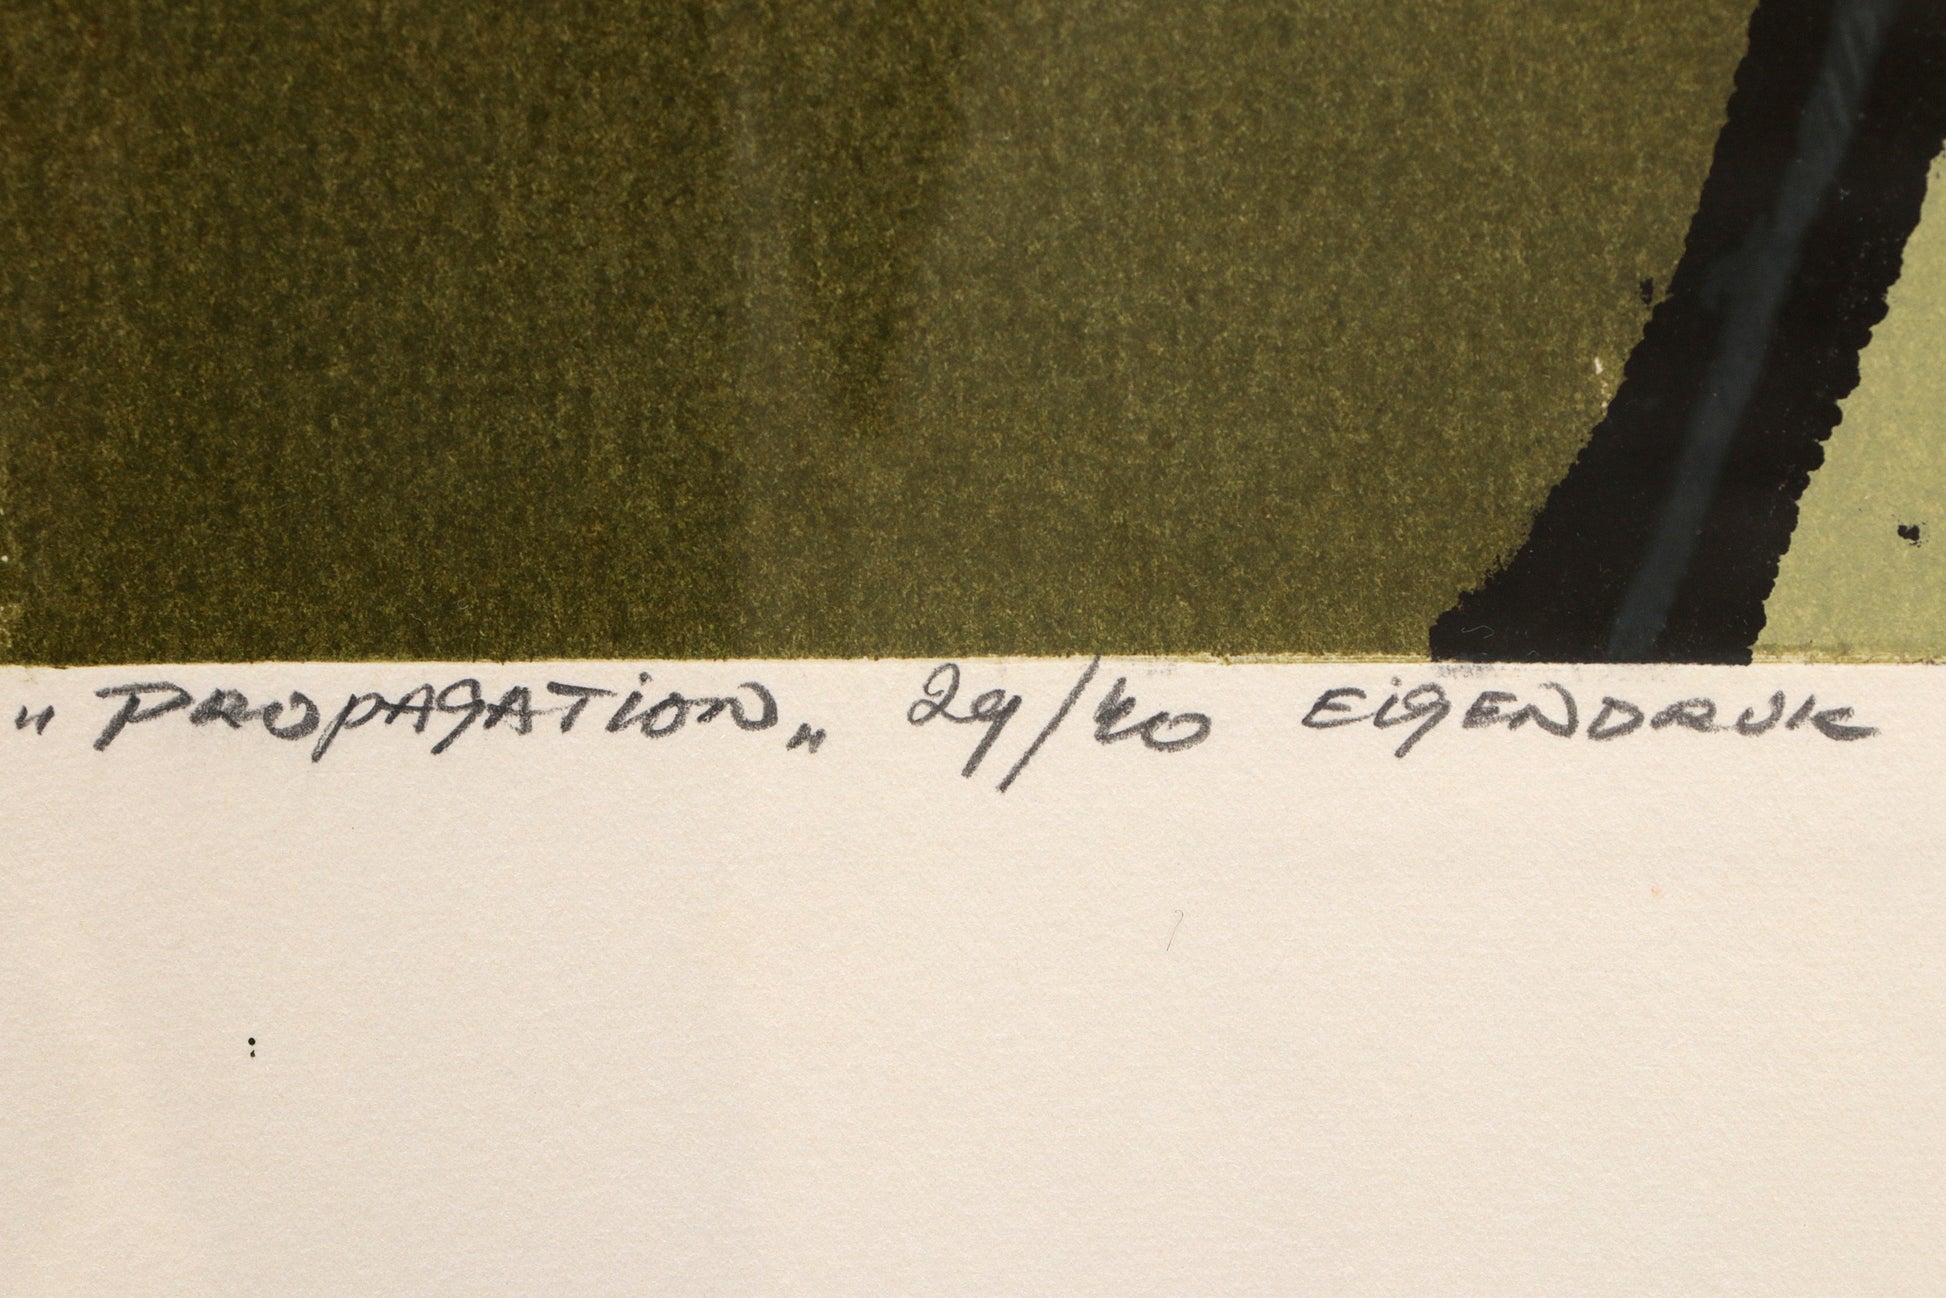 „ PROPAGATION „ 29/40 EIGENDRUK